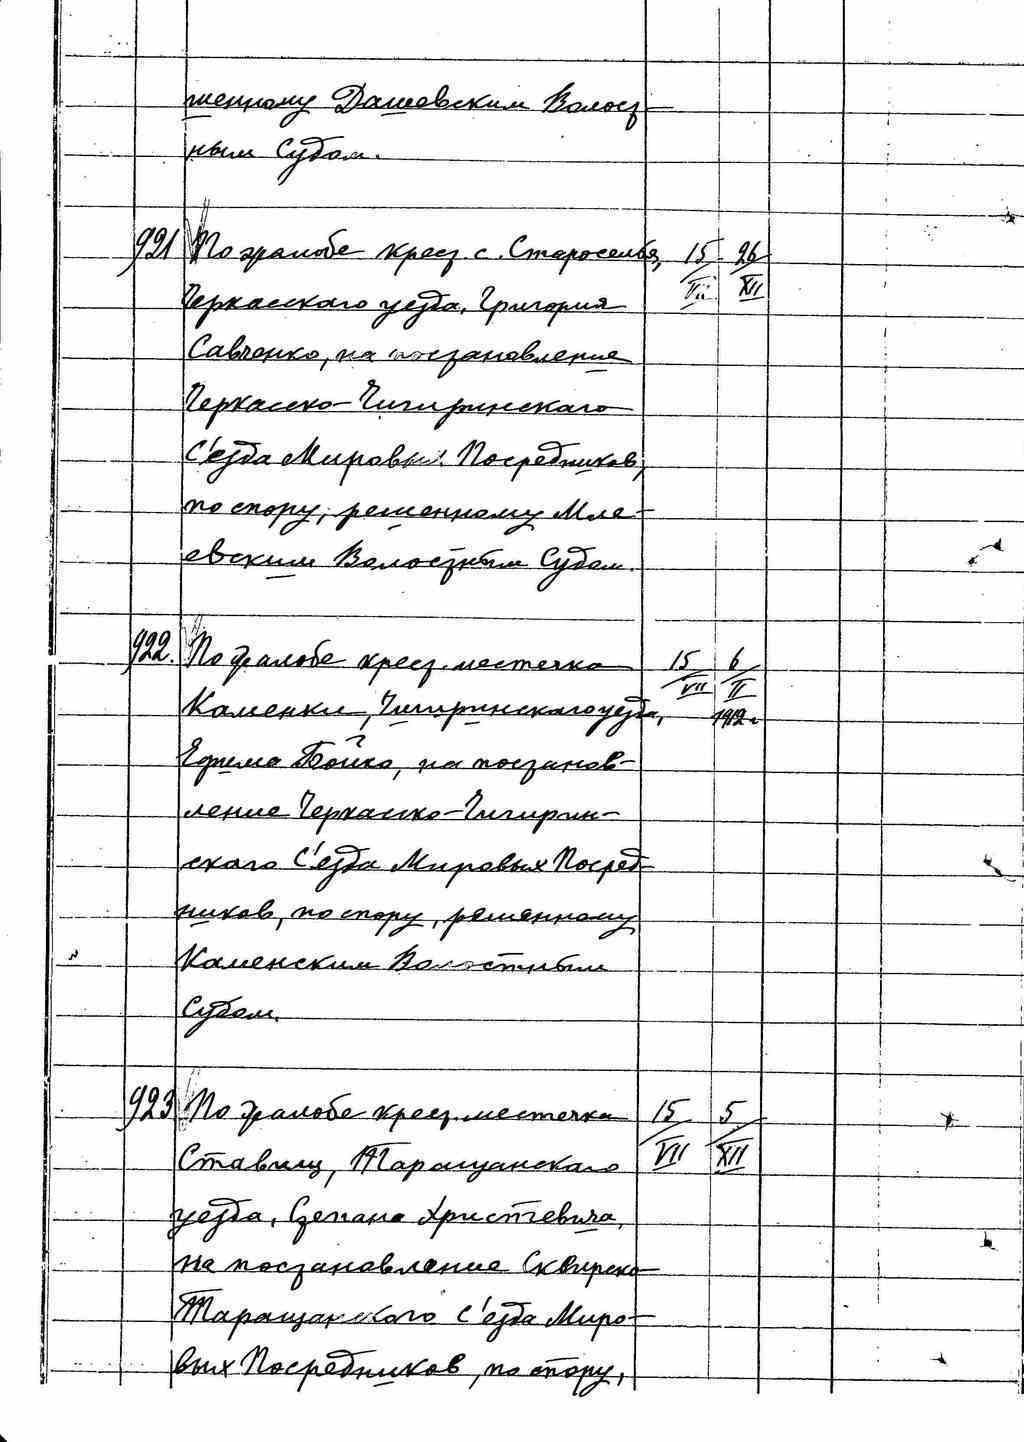 шенному Дашевским Волост-
ным Судом.
921 По жалобе крест. с. Староселья, 15 26
Черкасскаго уезда, Григория VII XII
Савченко, на постановление
Черкасско-Чигиринскаго
С'езда Мировых Посредников,
по спору, решенному Мле-
евским Волостным Судом.
922. По жалобе крест. местечка 15 6
Каменки, Чигиринскаго уезда, VII II
1912 г.
Ефима Бойко, на постанов-
ление Черкасско-Чигирин-
скаго С'езда Мировых Посред-
ников, по спору, решенному
Каменским Волостным
Судом.
923 По жалобе крест. местечка 15 5
Ставищ, Таращанскаго VII XII
уезда, Степана Христевича,
на постановление Сквирско-
Таращанскаго С'езда Миро-
вых Посредников, по спору,